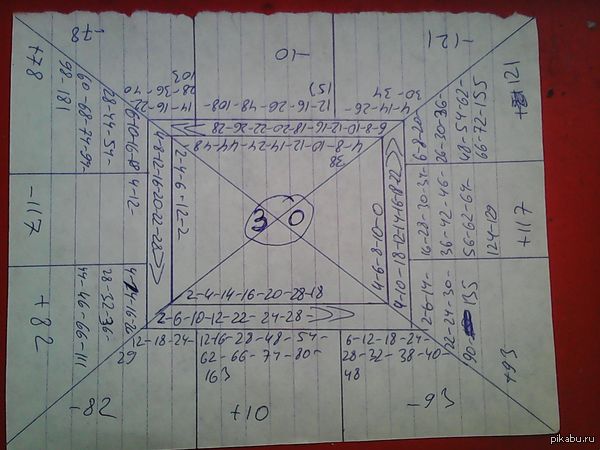 -78
-10
-121
+78
98-181
60-68-74-94-
28-44-54-
14-16-22-
28-36-40
103
12-16-26-48-108
4-14-26-
30-34
+121
6-8-20-
26-30-36-
48-54-62-
66-72-155
6-8-10-12-16-18-20-22-26-28
4-8-10-12-14-24-44-48
38
4-8-12-16-20-22-28
2-4-6-12-2
4-12-
-117
3 0
4-6-8-10-0
4-10-18-12-14-16-8-22
16-28-30-34-
36-42-46-
56-62-64-
124-129
+117
+82
44-46-66-111
28-32-36-
2-4-14-16-20-28-18
2-6-10-12-22-24-28-
2-6-14-
22-24-30-
90-135
+93
12-18-24-
29
12-16-28-48-54-
62-66-74-80-
163
6-12-18-24-
28-32-38-40-
48
-82
+10
-93
pikabu.ru